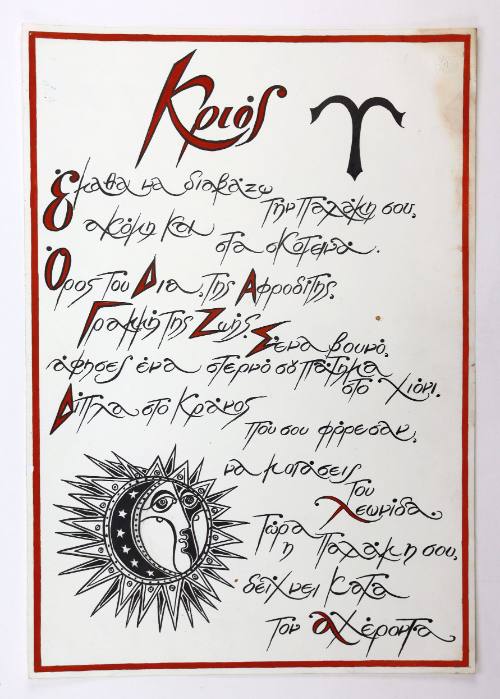 Κριός
Έμαθα να διαβάζω
την παλάμη σου,
ακόμη και
στα σκοτεινά.
Όρος του Δία, της Αφροδίτης,
Γραμμή της Ζωής. Σ'ένα βουνό,
άφησες ένα στερνό σου πάτημα
στο χιόνι.
Δίπλα στο Κράνος
που σου φόρεσαν,
να μοιάσεις
του
Λεωνίδα.
Τώρα
η Παλάμη σου,
δείχνει κατά
τον Αχέροντα.